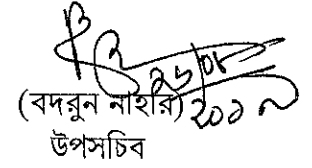 ২৬/০৮
(বদরুন নাহার)
উপসচিব